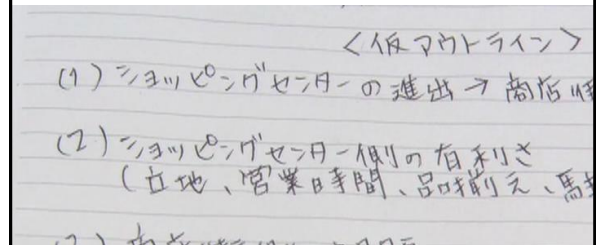 <仮アウトライン>
(1) ショッピングセンターの進出→商店
(2) ショッピングセンター側の有利さ
(立地、営業時間、品揃え、駐